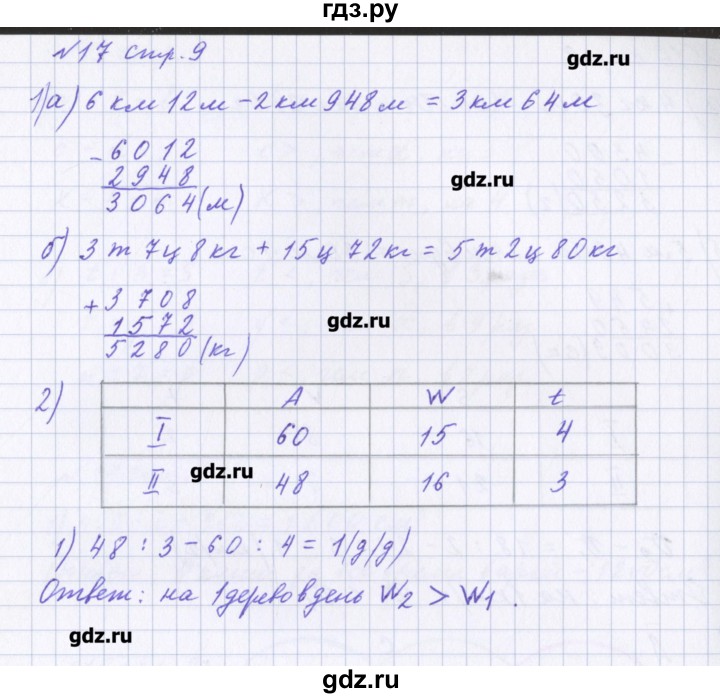 гдз.ру
№17 стр.9
gdz.ru
1)а) 6 км 12 м - 2 км 948 м = 3 км 64 м
- 6012
2948
3064(м)
gdz.ru
б) 3 т 7 ц 8 кг + 15 ц 72 кг = 5 т 2 ц 80 кг
+ 3708
1572
5280(кг)
gdz.ru
2)
A W t
I 60 15 4
II 48 16 3
gdz.ru
1) 48 : 3 - 60 : 4 = 1(д/д)
gdz.ru
Ответ: на 1 дерево в день W2 > W1.
gdz.ru
gdz.ru